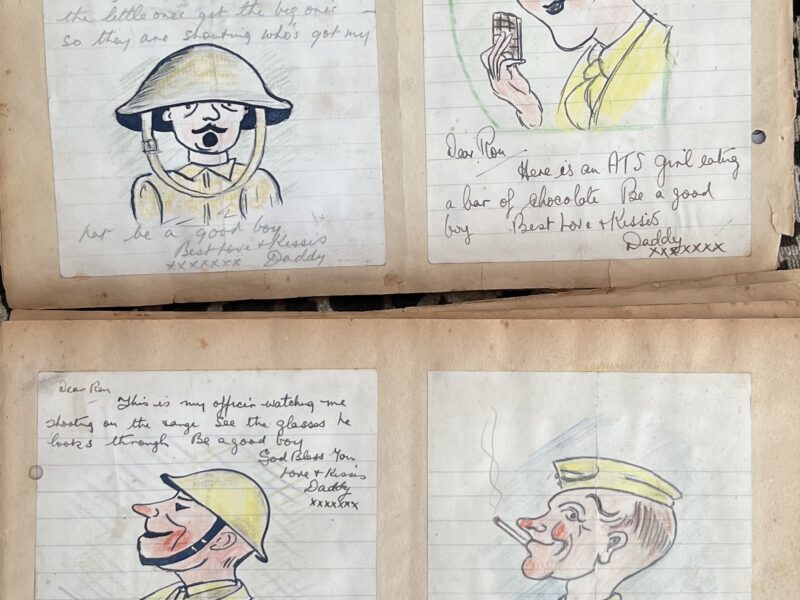 the little ones get the big ones
so they are shouting who's got my
hat be a good boy
Best Love + Kissis
xxxxxxx Daddy
Dear Ron
Here is an ATS girl eating
a bar of chocolate Be a good
boy Best Love + Kissis
Daddy
xxxxxxxx
Dear Ron
This is my officer watching me
shooting on the range See the glasses he
looks through Be a good boy
God Bless You
Love + Kissis
Daddy
xxxxxxx